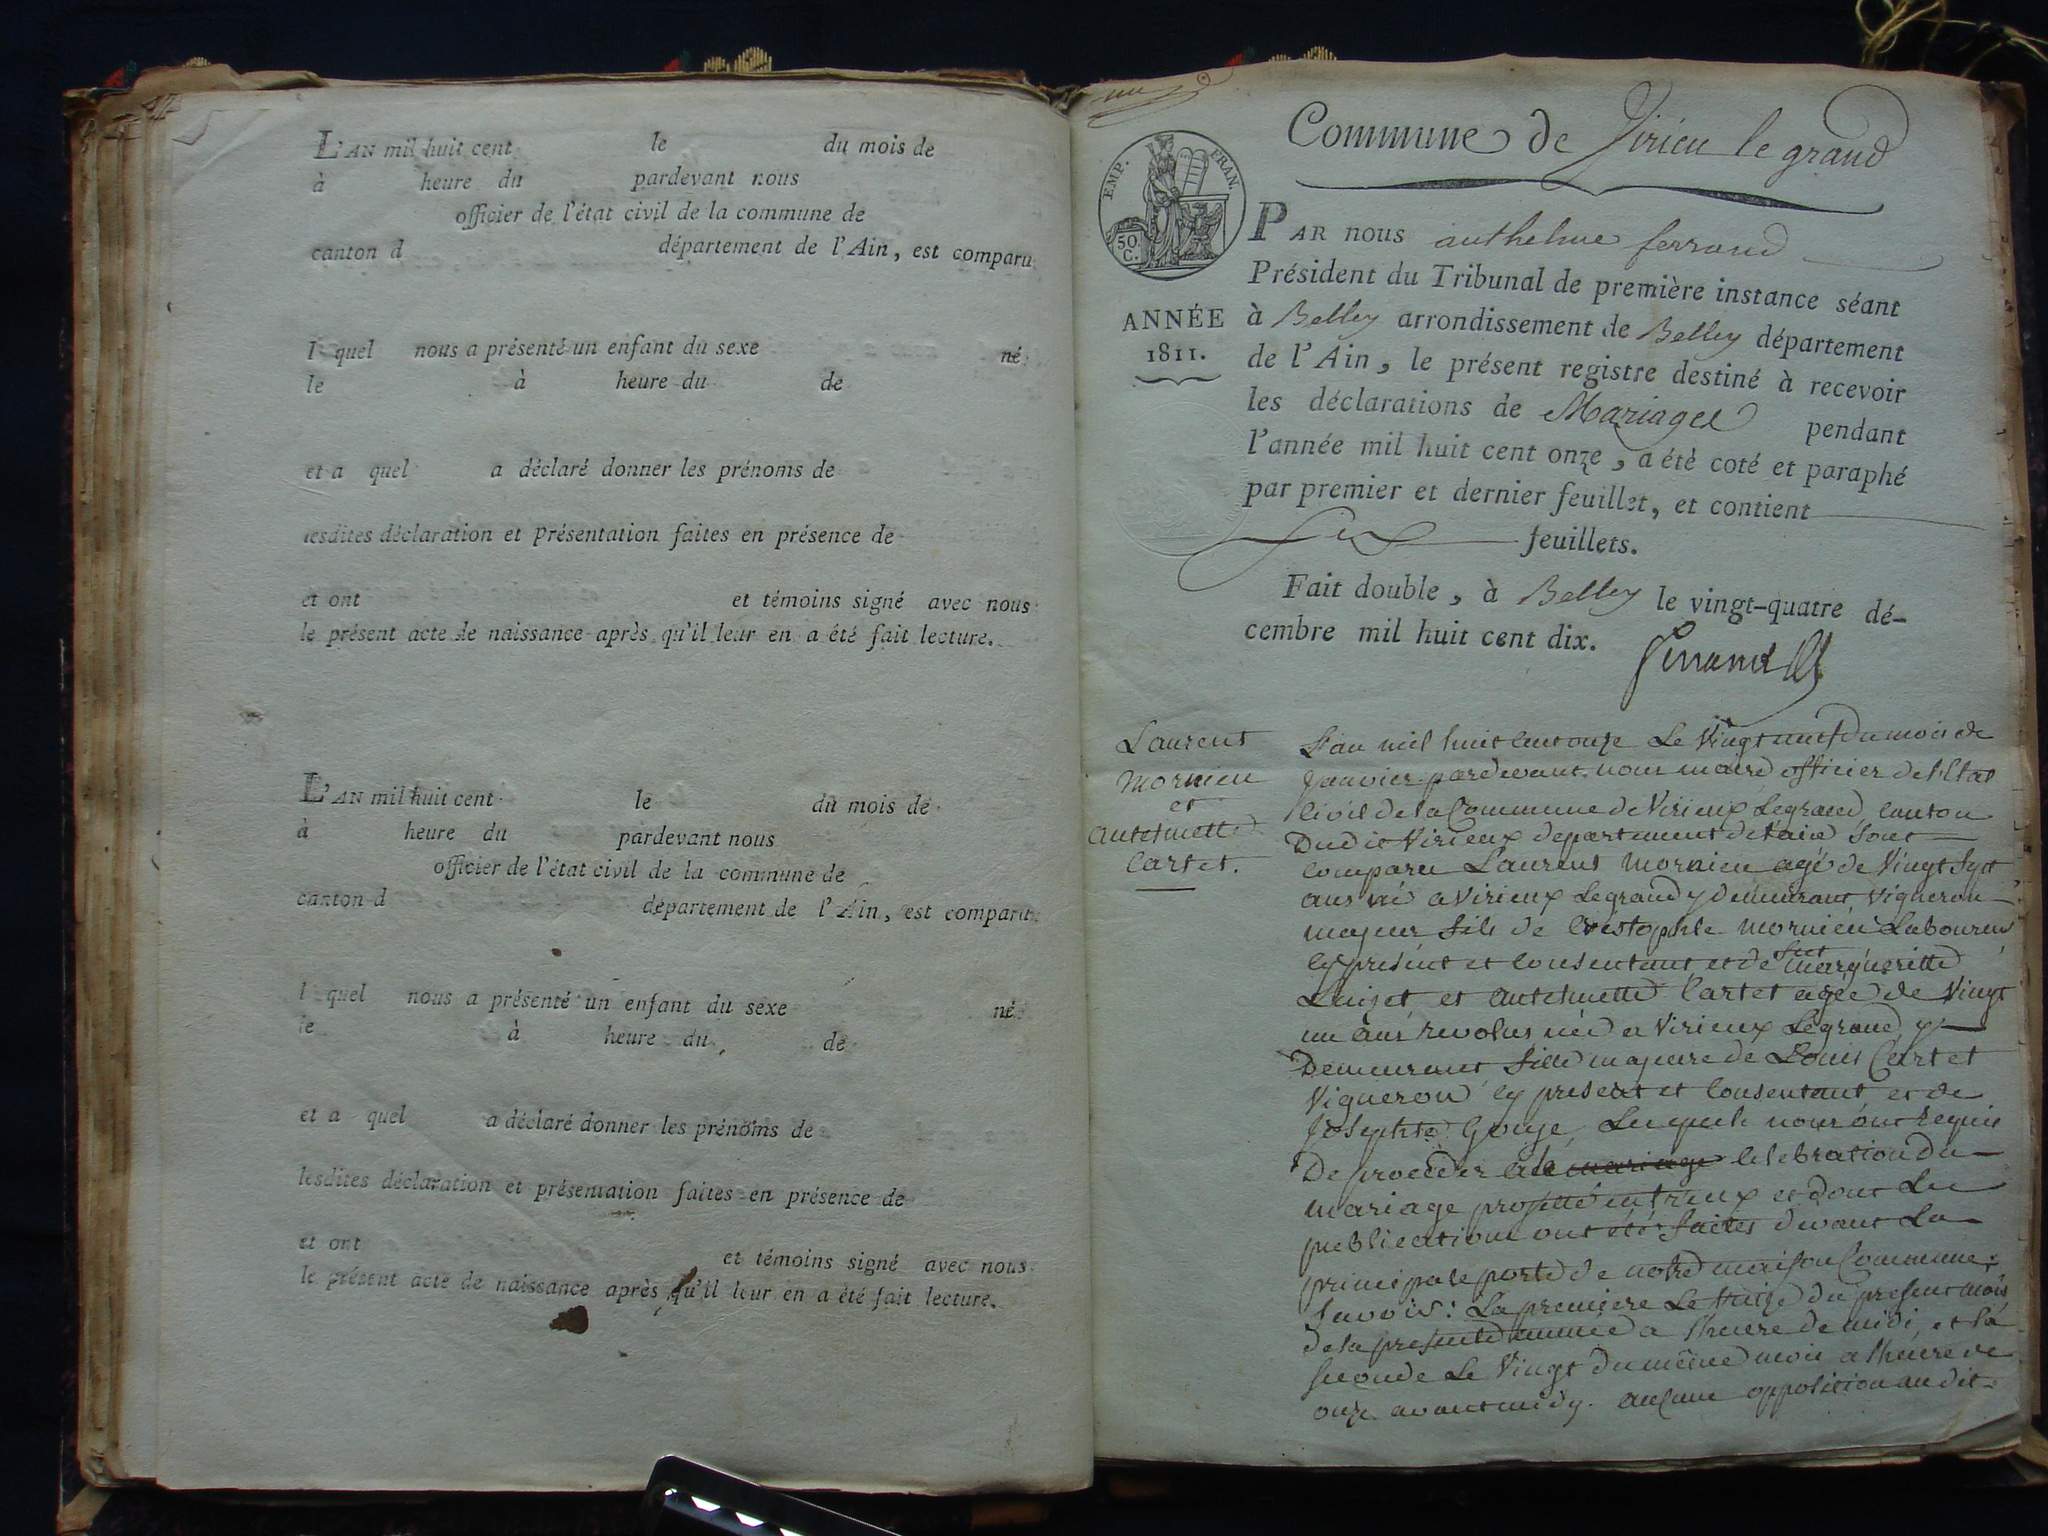 L'AN mil huit cent le du mois de
à heure du pardevant nous
officier de l'état civil de la commune de
canton d département de l'Ain, est comparu
l quel nous a présenté un enfant du sexe né
le à heure du de
et a quel a déclaré donner les prénoms de
lesdites déclaration et présentation faites en présence de
et ont et témoins signé avec nous
le présent acte de naissance après qu'il leur en a été fait lecture.
L'AN mil huit cent le du mois de
à heure du pardevant nous
officier de l'état civil de la commune de
canton d département de l'Ain, est comparu
l quel nous a présenté un enfant du sexe né
le à heure du de
et a quel a déclaré donner les prénoms de
lesdites déclaration et présentation faites en présence de
et ont et témoins signé avec nous
le présent acte de naissance après qu'il leur en a été fait lecture.
Commune de Virieu le grand
EMP. FRAN.
50. C.
ANNÉE
1811.
PAR nous anthelme ferrand
Président du Tribunal de première instance séant
à Belley arrondissement de Belley département
de l'Ain, le présent registre destiné à recevoir
les déclarations de Mariages pendant
l'année mil huit cent onze, a été coté et paraphé
par premier et dernier feuillet, et contient
six feuillets.
Fait double, à Belley le vingt-quatre dé-
cembre mil huit cent dix.
Ferrand
Laurent
Mornieu
et
Antelmette
Cartet.
L'an mil huit cent onze Le Vingt neuf du mois de
Janvier pardevant nous maire officier de l'Etat
Civil de la Commune de Virieux Legrand canton
Dudit Virieux departement de l'ain Sont
Comparu Laurent Mornieu agé de Vingt Sept
ans né a Virieux Legrand y demeurant Vigneron
majeur fils de Cristophle Mornieu Laboureur
Cy present et Consentant et de fut Margueritte
Luizet et Antelmette Cartet agée de Vingt
un ans revolus née a Virieux Legrand y
Demeurant fille majeure de Louis Cartet
Vigneron Cy present et Consentant et de
Josephte Gouje, Lesquels nous ont Requis
De procéder a la mariage celebration du
mariage projetté entreux et dont Les
publications ont été faites devant La
principale porte de notre maison Commune;
Savoir: La premiere Le treize du present mois
de la presente année a l'heure de midi, et la
seconde Le Vingt du même mois a l'heure de
onze avant midy. aucune opposition audit